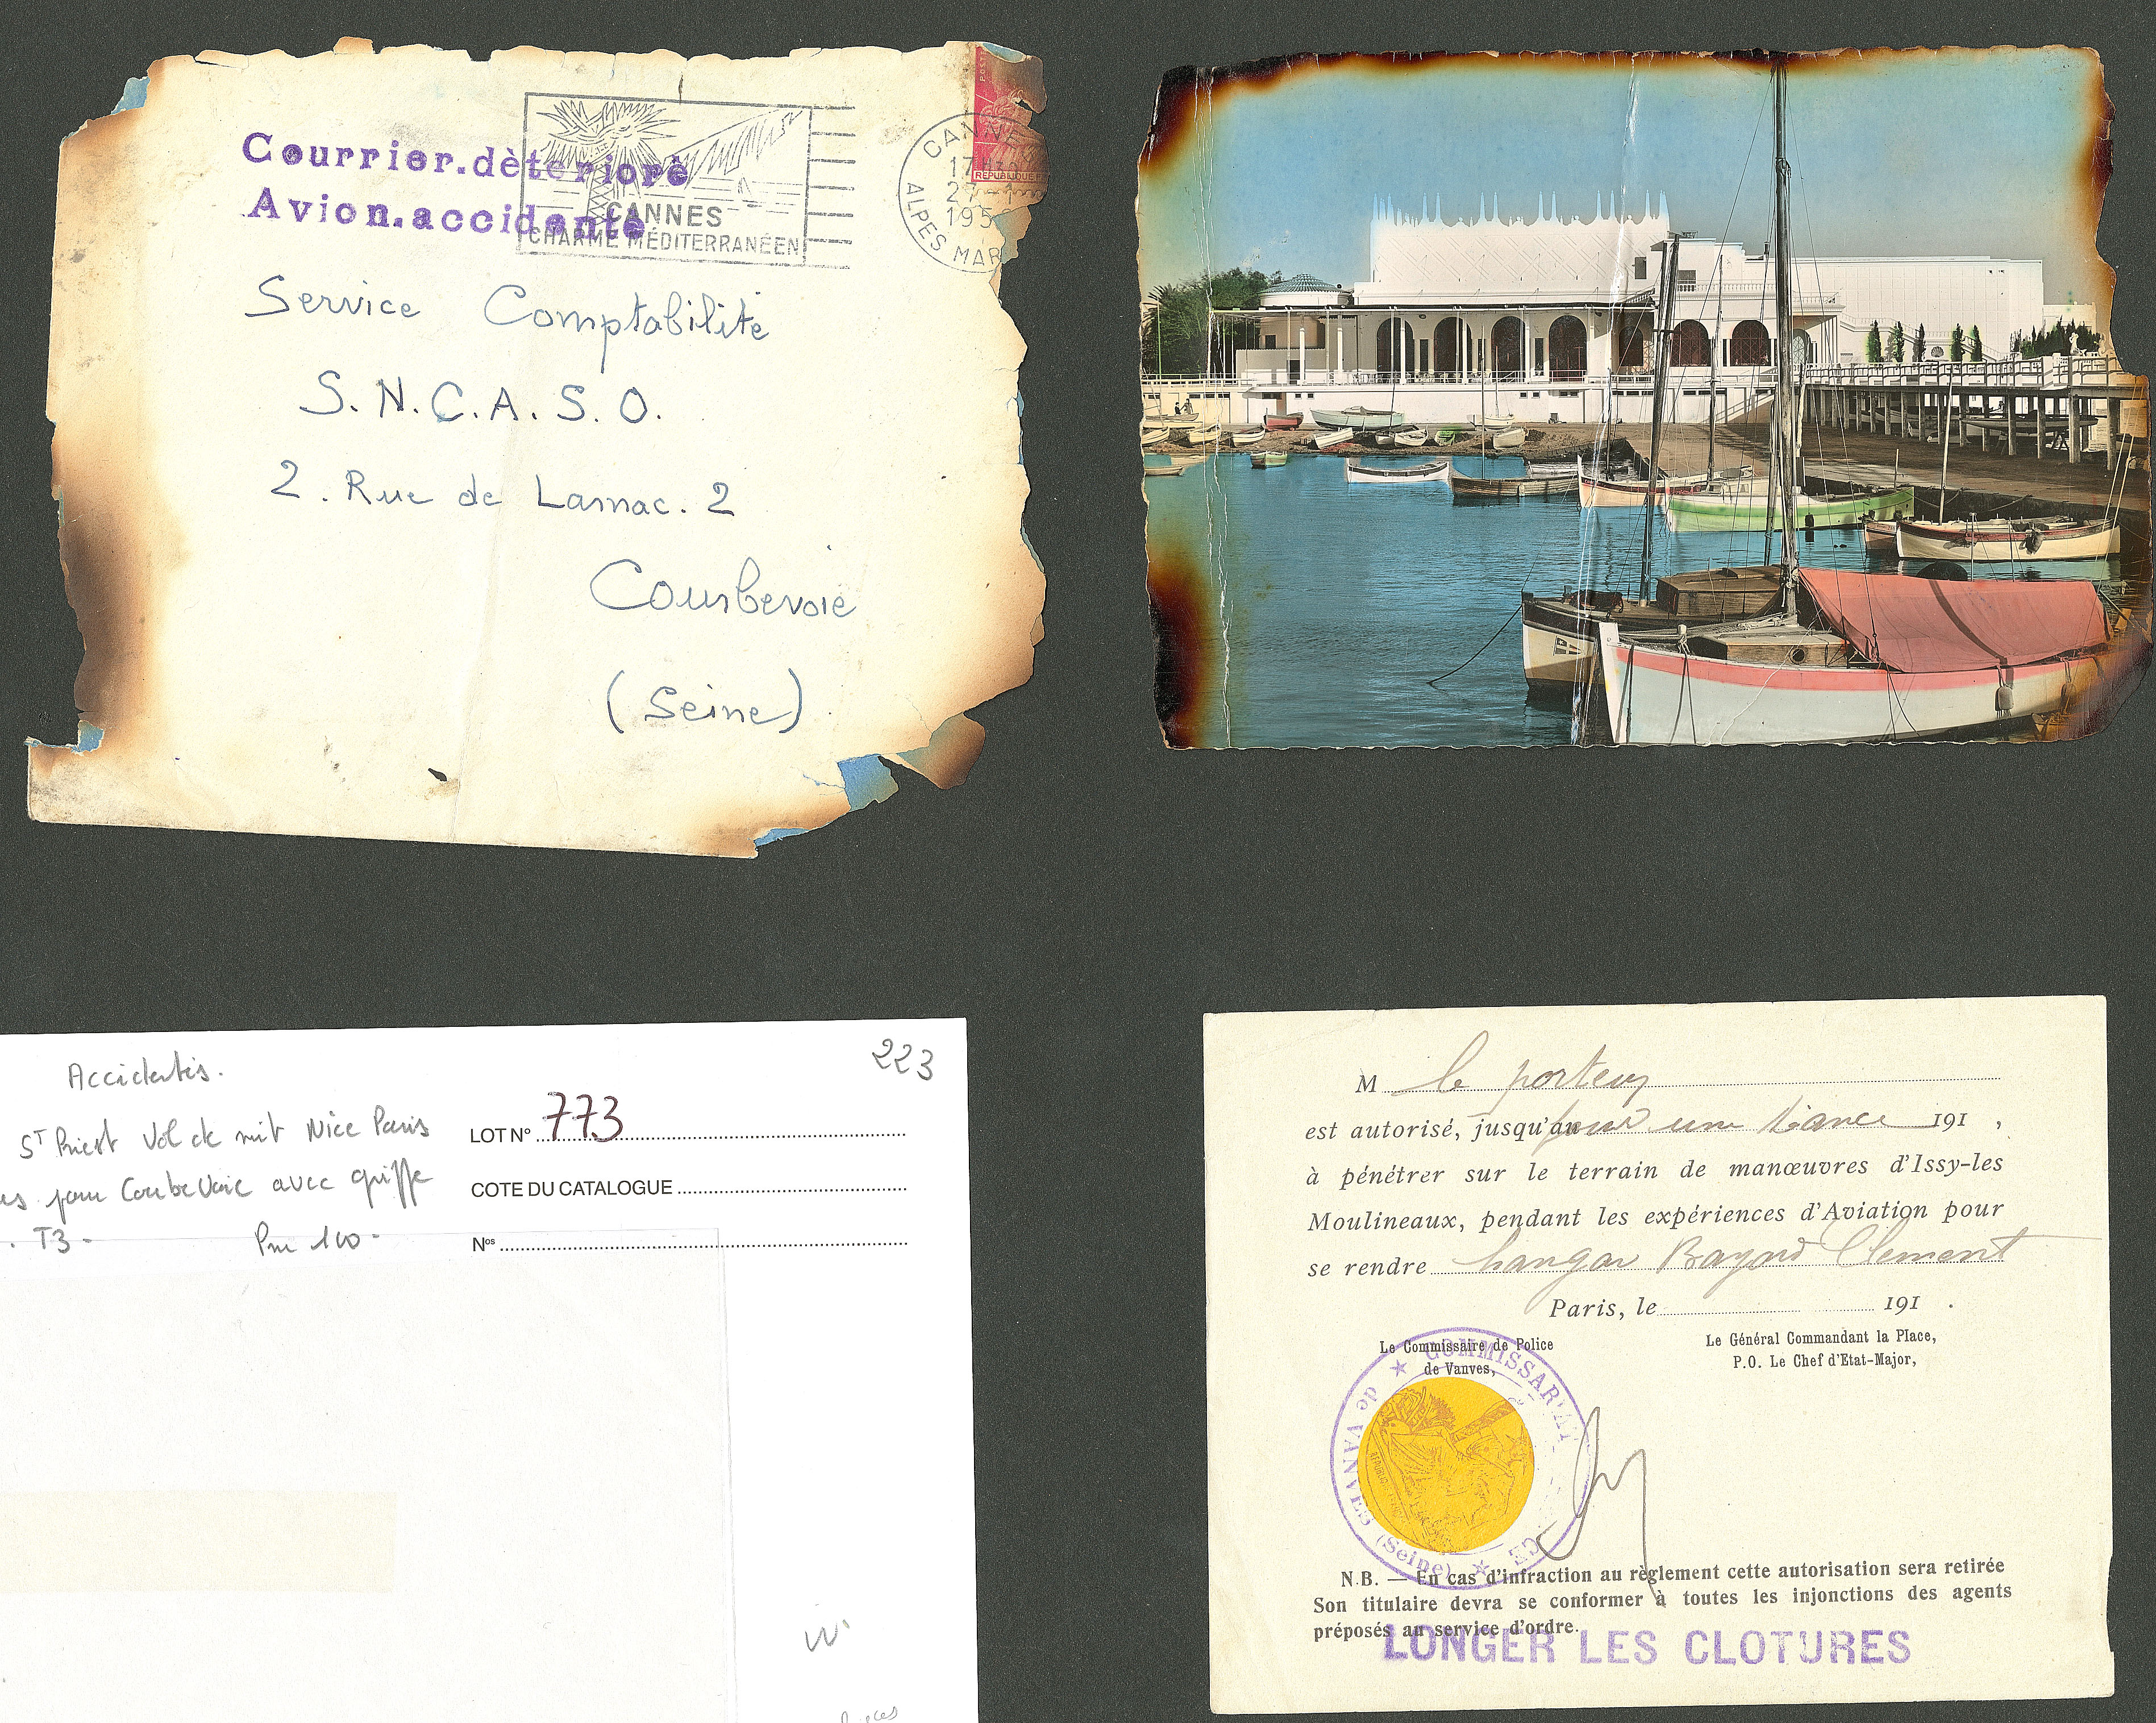 Courrier.dèteriorè
Avion.accidentè
CANNES
CHARME MÉDITERRANÉEN
CANNE
17 H
27 - 1
195
ALPES MAR
POST
REPUBLIQUE F
Service Comptabilité
S.N.C.A.S.O.
2. Rue de Larnac. 2
Courbevoie
(Seine)
Accidentés.
223
ST Priest Vol de nuit Nice Paris
LOT Nº 773
pour Courbevoie avec griffe
COTE DU CATALOGUE
. T3 -
100 -
Nos
M le porteur
est autorisé, jusqu'au pour une séance 191 ,
à pénétrer sur le terrain de manœuvres d'Issy-les
Moulineaux, pendant les expériences d'Aviation pour
se rendre hangar Bayard Clement
Paris, le 191 .
Le Commissaire de Police
de Vanves,
Le Général Commandant la Place,
P.O. Le Chef d'Etat-Major,
COMMISSARIAT
de VANVES (Seine)
N.B. — En cas d'infraction au règlement cette autorisation sera retirée
Son titulaire devra se conformer à toutes les injonctions des agents
préposés au service d'ordre.
LONGER LES CLOTURES